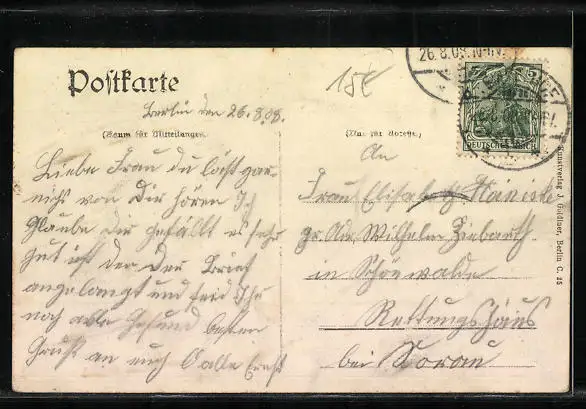 Postkarte
26.8.08.
15E
Berlin den 26.8.08.
(Raum für Mitteilungen)
(Nur für Adresse.)
DEUTSCHES REICH
Liebe Frau du läßt gar
nicht von Dir hören Ich
Glaube Dir gefällt es sehr
gut ist den der Brief
angelangt und seid Ihr
noch alle Gesund besten
Gruß an euch alle Ernst
An
Frau Elisabeth
Wilhelm Ziebarth
in Schönwalde
Rettungshaus
bei Sorau
Kunstverlag J. Goldiner, Berlin C. 25